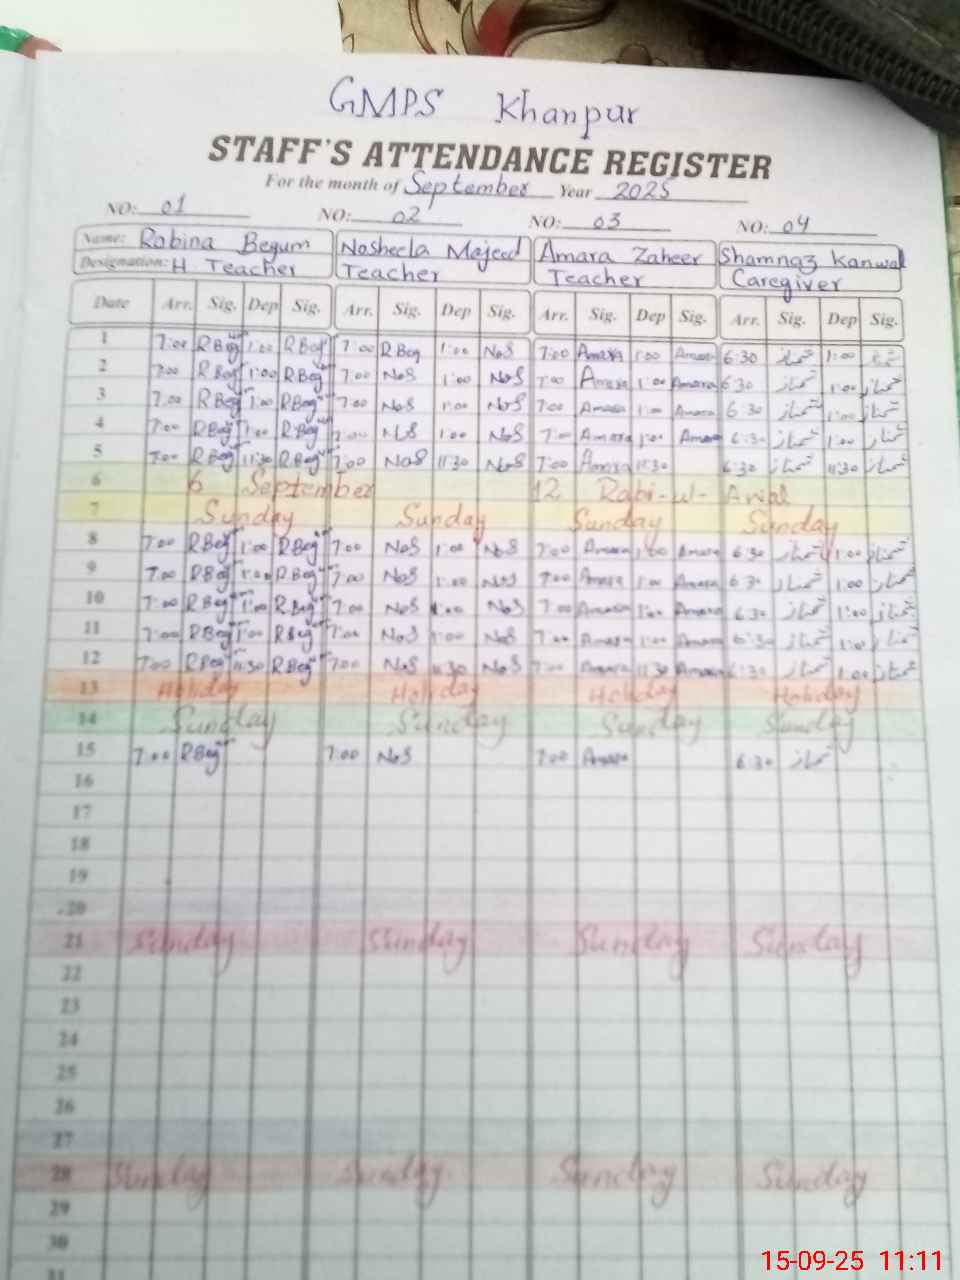 GMPS Khanpur
STAFF'S ATTENDANCE REGISTER
For the month of September Year 2025
NO: 01 NO: 02 NO: 03 NO: 04
Name: Robina Begum Nosheela Majeed Amara Zaheer Shamnaz Kanwal
Designation: H Teacher Teacher Teacher Caregiver
Date Arr. Sig. Dep Sig. Arr. Sig. Dep Sig. Arr. Sig. Dep Sig. Arr. Sig. Dep Sig.
1 7:00 R Beg 1:00 R Beg 7:00 R Beg 1:00 NoS 7:00 Amara 1:00 Amara 6:30 شمناز 1:00
2 7:00 R Beg 1:00 R Beg 7:00 NoS 1:00 NoS 7:00 Amara 1:00 Amara 6:30 شمناز 1:00 شمناز
3 7:00 R Beg 1:00 R Beg 7:00 NoS 1:00 NoS 7:00 Amara 1:00 Amara 6:30 شمناز 1:00 شمناز
4 7:00 R Beg 1:00 R Beg 7:00 NoS 1:00 NoS 7:00 Amara 1:00 Amara 6:30 شمناز 1:00 شمناز
5 7:00 R Beg 11:30 R Beg 7:00 NoS 11:30 NoS 7:00 Amara 11:30 6:30 شمناز 11:30 شمناز
6 6 September 12 Rabi-ul-Awal
7 Sunday Sunday Sunday Sunday
8 7:00 R Beg 1:00 R Beg 7:00 NoS 1:00 NoS 7:00 Amara 1:00 Amara 6:30 شمناز 1:00 شمناز
9 7:00 R Beg 1:00 R Beg 7:00 NoS 1:00 NoS 7:00 Amara 1:00 Amara 6:30 شمناز 1:00 شمناز
10 7:00 R Beg 1:00 R Beg 7:00 NoS 1:00 NoS 7:00 Amara 1:00 Amara 6:30 شمناز 1:00 شمناز
11 7:00 R Beg 1:00 R Beg 7:00 NoS 1:00 NoS 7:00 Amara 1:00 Amara 6:30 شمناز 1:00 شمناز
12 7:00 R Beg 11:30 R Beg 7:00 NoS 11:30 NoS 7:00 Amara 11:30 Amara 6:30 شمناز 1:00 شمناز
13 Holiday Holiday Holiday Holiday
14 Sunday Sunday Sunday Sunday
15 7:00 R Beg 7:00 NoS 7:00 Amara 6:30 شمناز
16
17
18
19
20
21 Sunday Sunday Sunday Sunday
22
23
24
25
26
27
28 Sunday Sunday Sunday Sunday
29
30
31
15-09-25 11:11